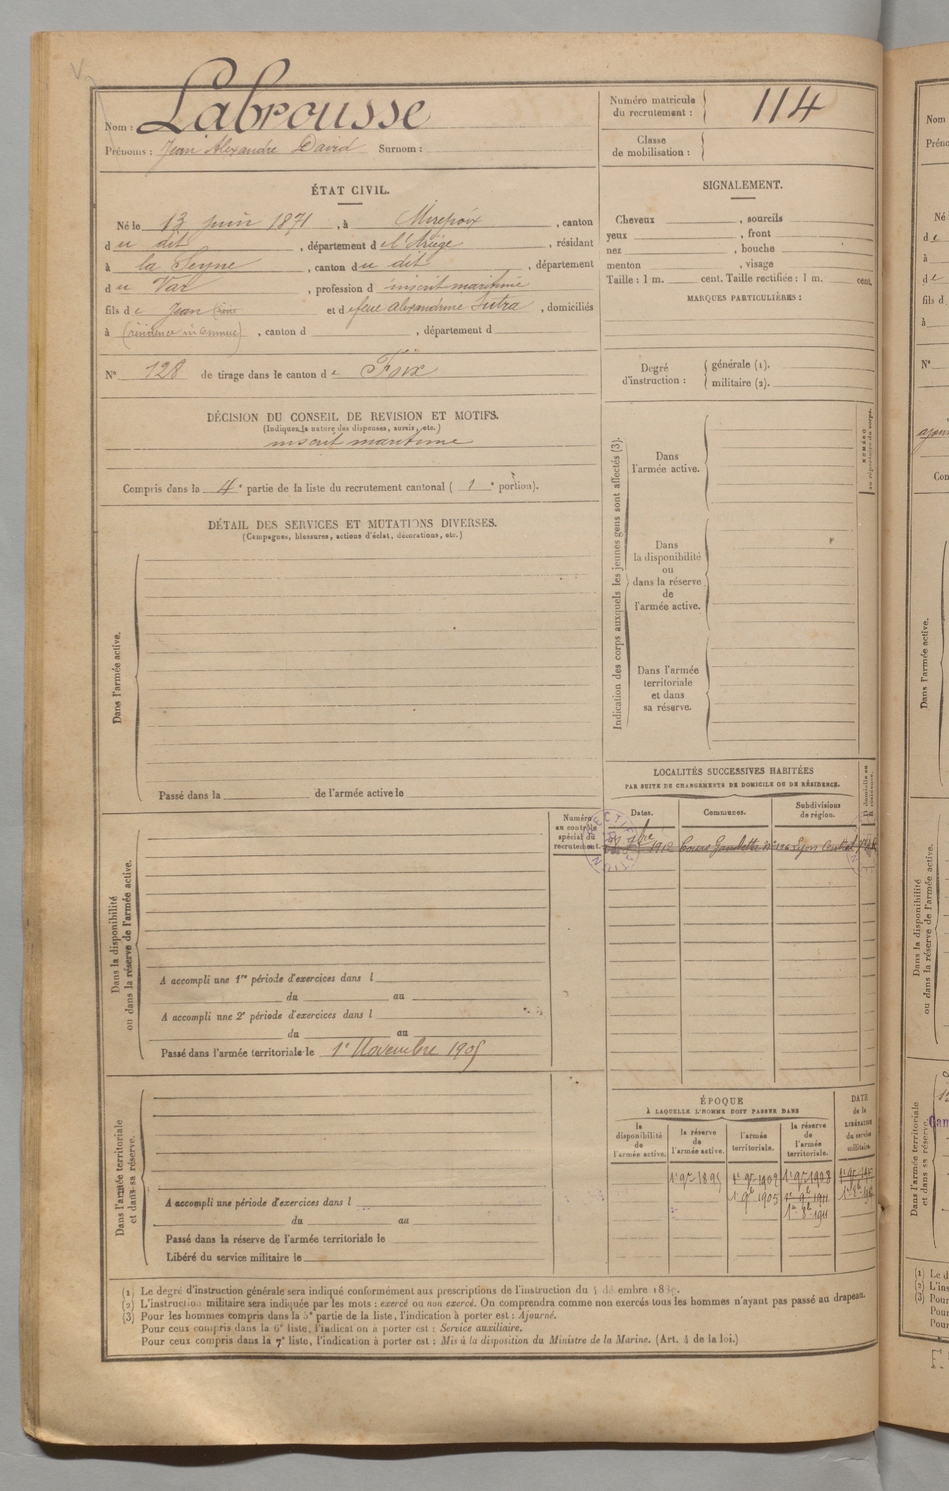 Nom : Labrousse
Prénoms : Jean Alexandre David Surnom :
Numéro matricule du recrutement : 114
Classe de mobilisation :
ÉTAT CIVIL.
Né le 13 juin 1871, à Mirepoix, canton
du dit, département de l'Ariège, résidant
à la Seyne, canton du dit, département
du Var, profession d inscrit maritime
fils de Jean et de feue Alexandrine Sutra, domiciliés
à (résidence inconnue), canton d , département d
N° 128 de tirage dans le canton de Foix
DÉCISION DU CONSEIL DE REVISION ET MOTIFS.
(Indiquez la nature des dispenses, sursis, etc.)
inscrit maritime
Compris dans la 4e partie de la liste du recrutement cantonal ( 1e portion).
SIGNALEMENT.
Cheveux , sourcils
yeux , front
nez , bouche
menton , visage
Taille : 1 m. cent. Taille rectifiée : 1 m. cent.
MARQUES PARTICULIÈRES :
Degré d'instruction : générale (1).
militaire (2).
DÉTAIL DES SERVICES ET MUTATIONS DIVERSES.
(Campagnes, blessures, actions d'éclat, décorations, etc.)
Dans l'armée active.
Passé dans la de l'armée active le
Indication des corps auxquels les jeunes gens sont affectés (3).
Dans
l'armée active.
Dans
la disponibilité
ou
dans la réserve
de
l'armée active.
Dans l'armée
territoriale
et dans
sa réserve.
NUMÉRO
au répertoire du corps.
Dans la disponibilité
ou dans la réserve de l'armée active.
Numéro
au contrôle
spécial du
recrutement.
A accompli une 1re période d'exercices dans l
du au
A accompli une 2e période d'exercices dans l
du au
Passé dans l'armée territoriale le 1er Novembre 1905
LOCALITÉS SUCCESSIVES HABITÉES
PAR SUITE DE CHANGEMENTS DE DOMICILE OU DE RÉSIDENCE.
Dates. Communes. Subdivisions
de région.
D domicile ou
R résidence.
1912 Cours Gambetta N° 126 Lyon Central
Dans l'armée territoriale
et dans sa réserve.
A accompli une période d'exercices dans l
du au
Passé dans la réserve de l'armée territoriale le
Libéré du service militaire le
ÉPOQUE
À LAQUELLE L'HOMME DOIT PASSER DANS
la
disponibilité
de
l'armée active.
la réserve
de
l'armée active.
l'armée
territoriale.
la réserve
de
l'armée
territoriale.
DATE
de la
LIBÉRATION
du service
militaire.
1895 1902 1908
1905 1911
1911
(1) Le degré d'instruction générale sera indiqué conformément aux prescriptions de l'instruction du
(2) L'instruction militaire sera indiquée par les mots : exercé ou non exercé. On comprendra comme non exercés tous les hommes n'ayant pas passé au drapeau.
(3) Pour les hommes compris dans la 5e partie de la liste, l'indication à porter est : Ajourné.
Pour ceux compris dans la 6e liste, l'indication à porter est : Service auxiliaire.
Pour ceux compris dans la 7e liste, l'indication à porter est : Mis à la disposition du Ministre de la Marine. (Art. 4 de la loi.)